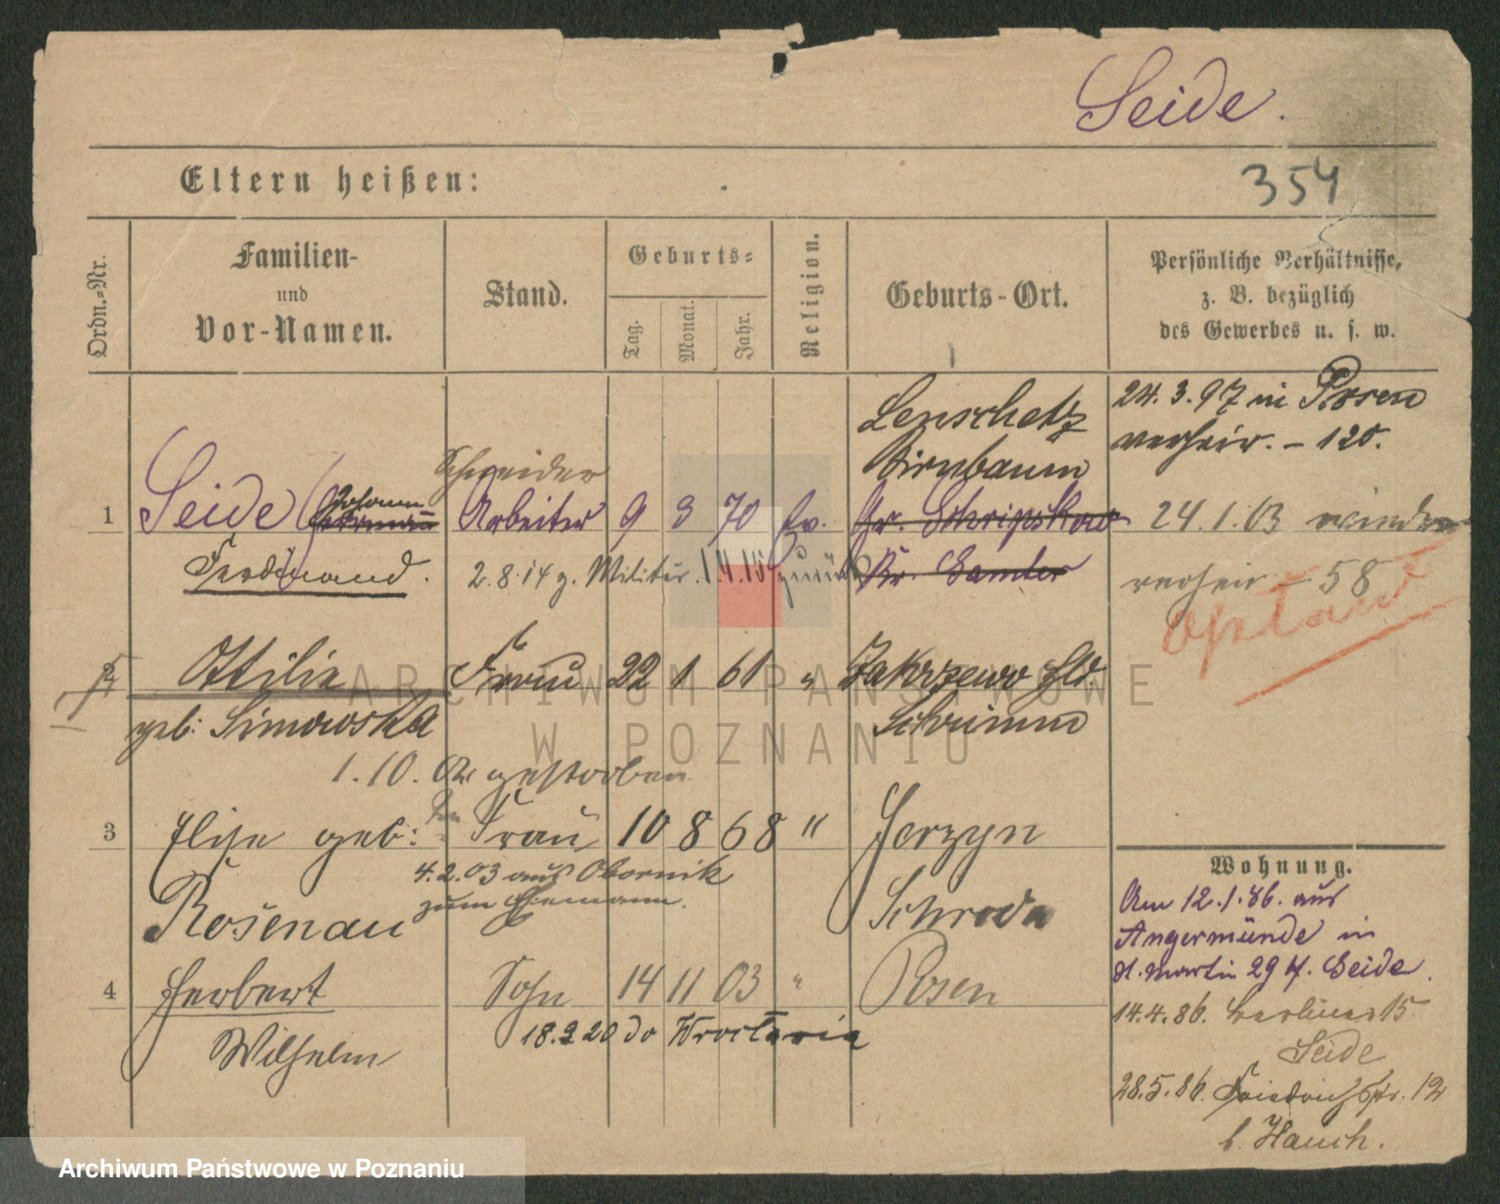 Seide.
354
Eltern heißen:
Ordn.-Nr.
Familien-
und
Vor-Namen.
Stand.
Geburts-
Tag.
Monat.
Jahr.
Religion.
Geburts-Ort.
Persönliche Verhältnisse,
z. B. bezüglich
des Gewerbes u. s. w.
Lenschetz
Birnbaum
24.3.97 in Posen
verheir. - 120.
Schneider
Johann
1 Seide Arbeiter 9 3 70 Ev. Gr. Schripskow
24.1.03 wieder
verheir - 58
Ferdinand.
2.8.14 z. Militär. 1.4.15 zurück
Kr. Samter
Optant
2 Ottilie Frau 22 1 61 " Zakrzewo Hld
geb. Simowska
Schrimm
1.10.02 gestorben
3 Elise geb: Frau 10 8 68 " Jerzyn
4.2.03 aus Obornik
zum Ehemann.
Rosenau
Schroda
4 Herbert Sohn 14 11 03 " Posen
Wilhelm
18.2 20 do Wrocławia
Wohnung.
Am 12.1.86. aus
Angermünde in
St. Martin 29 Seide.
14.4.86. 15
Seide
28.5.86. Friedrichstr. 12
b. Hauch.
ARCHIWUM PAŃSTWOWE
W POZNANIU
Archiwum Państwowe w Poznaniu